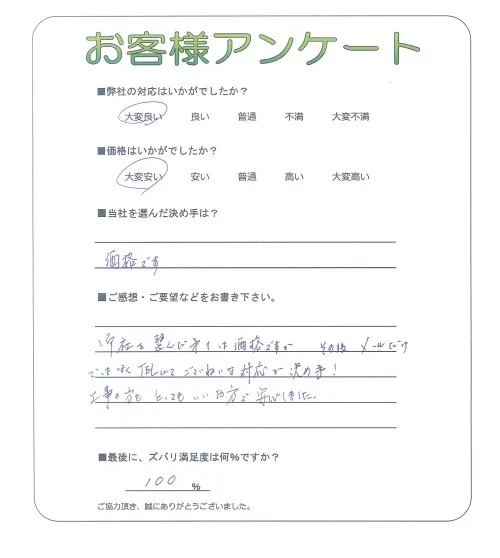 お客様アンケート
■弊社の対応はいかがでしたか？
大変良い 良い 普通 不満 大変不満
■価格はいかがでしたか？
大変安い 安い 普通 高い 大変高い
■当社を選んだ決め手は？
価格です
■ご感想・ご要望などをお書き下さい。
価格ですが その後 メールだけ
ではなく TELにて ごていねいな対応が決め手！
工事の方も とってもいい方で 安心しました。
■最後に、ズバリ満足度は何％ですか？
100 %
ご協力頂き、誠にありがとうございました。